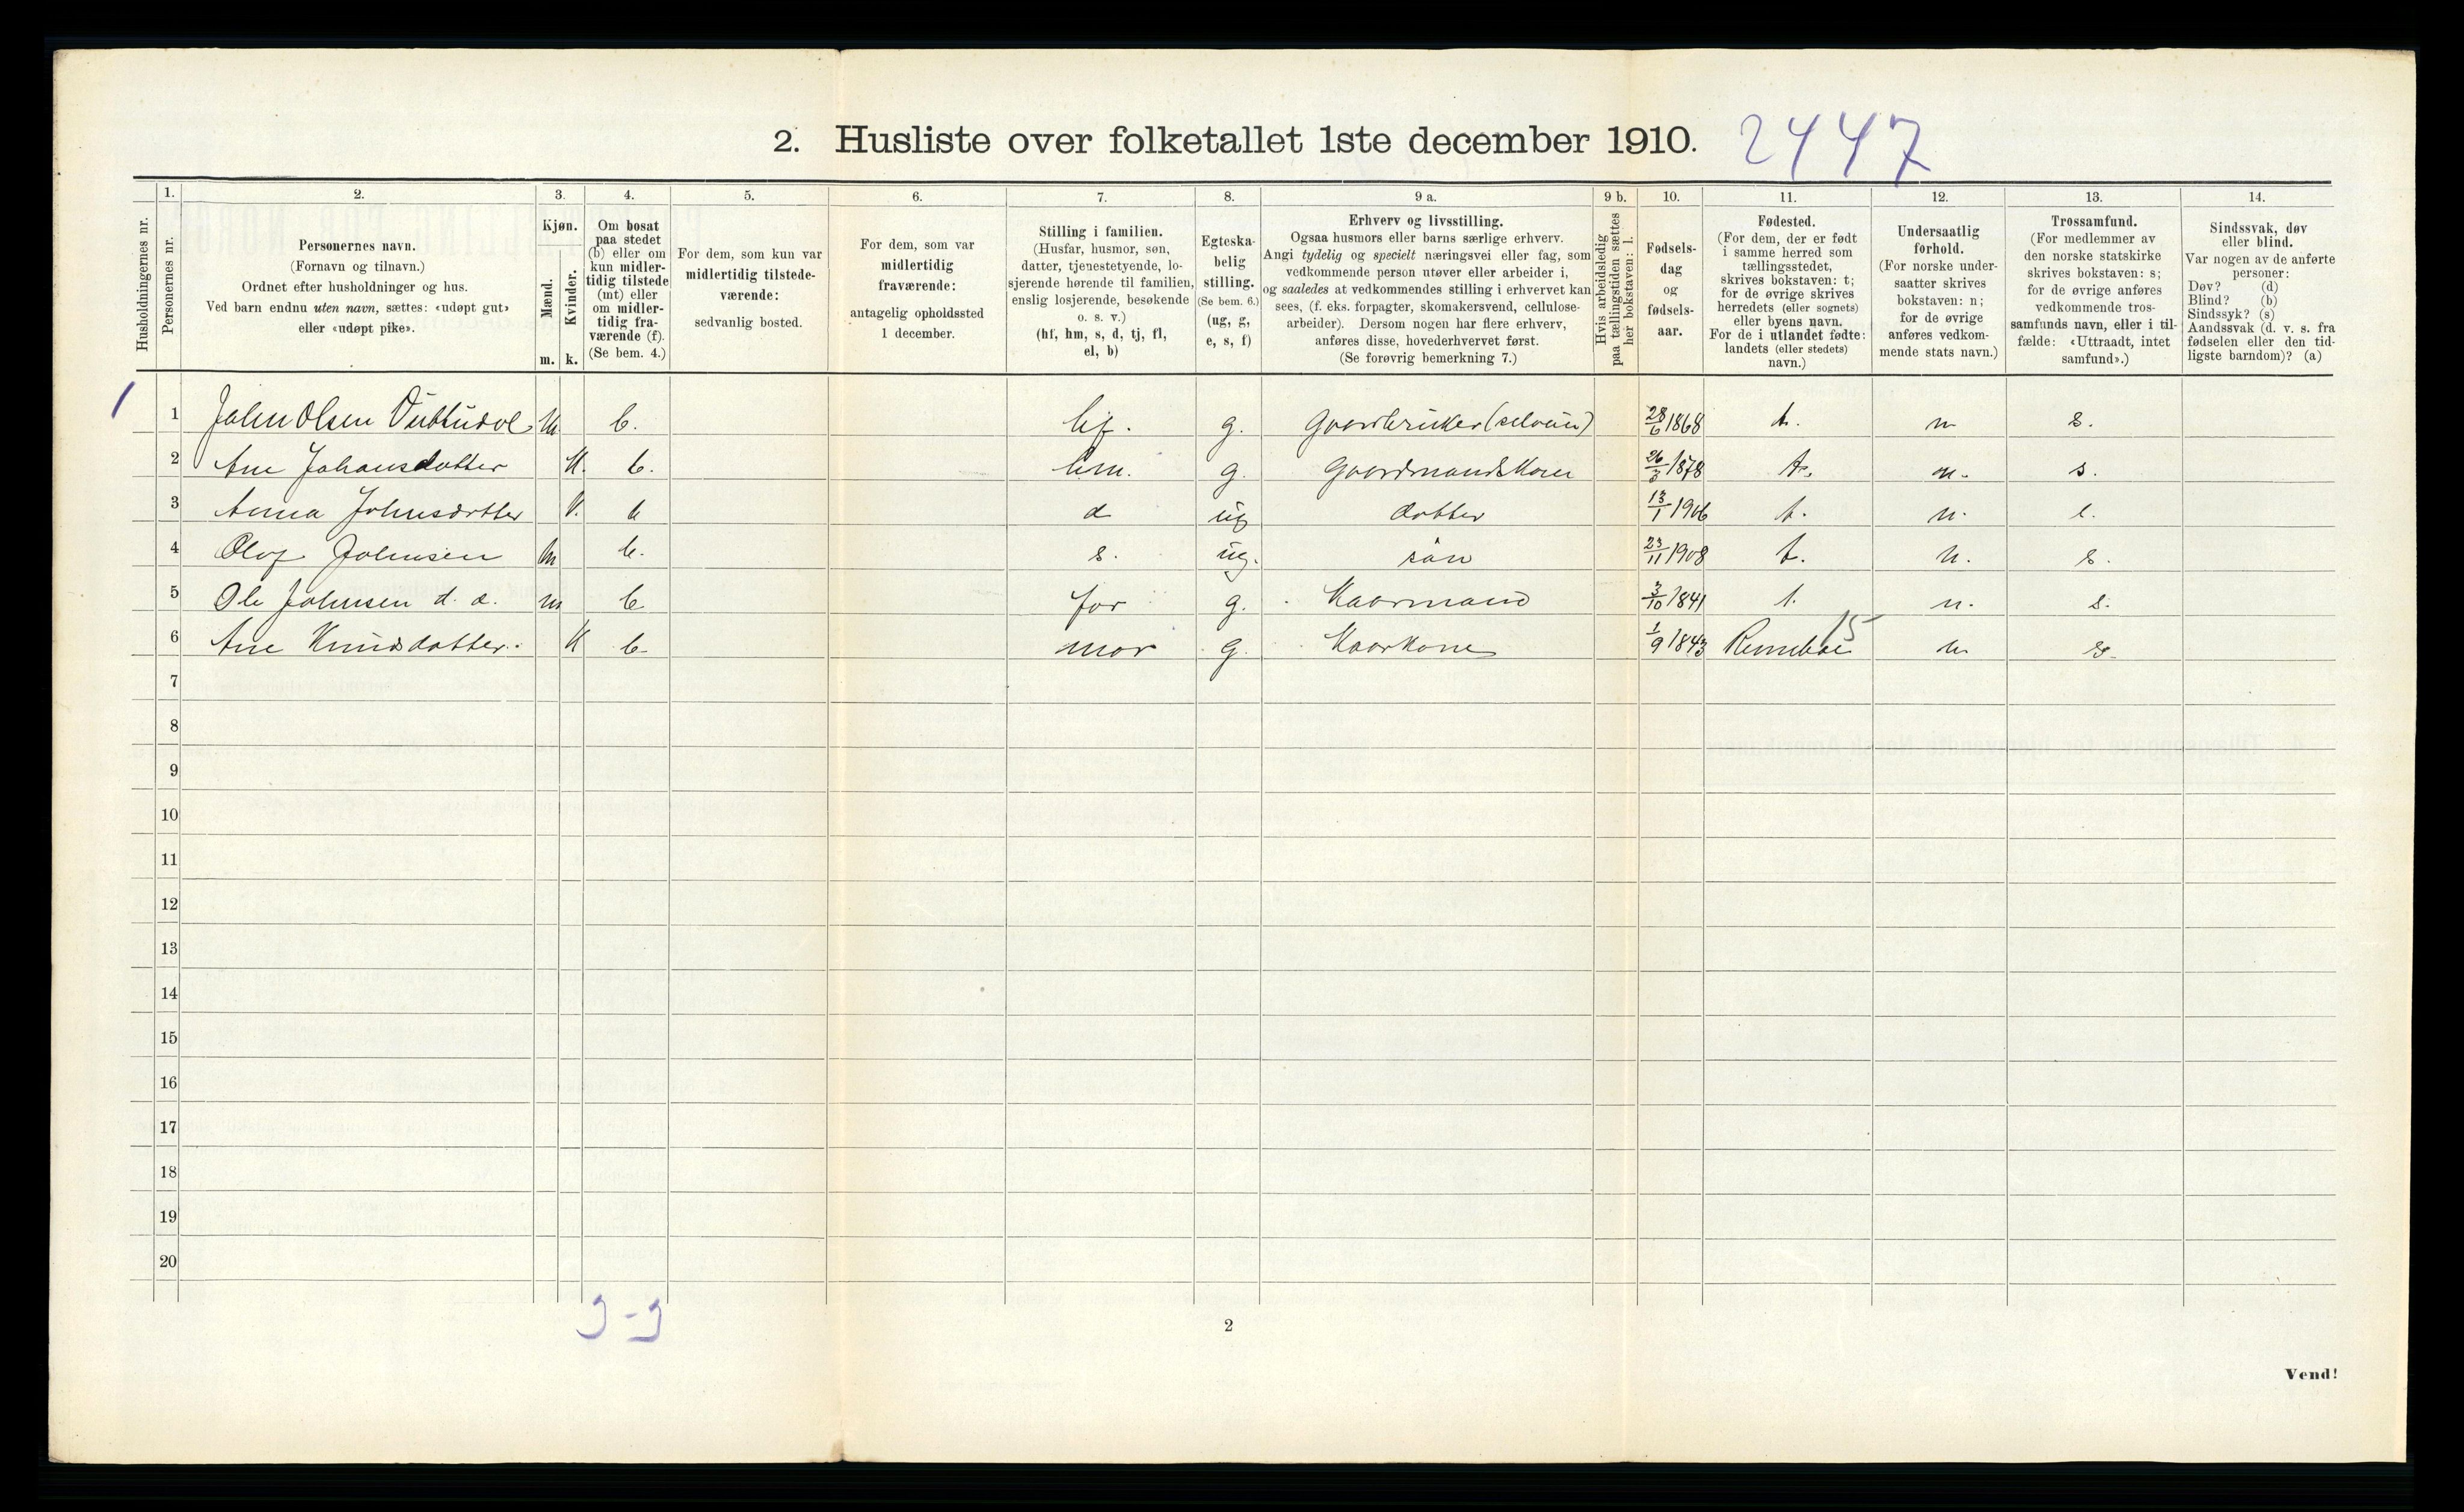 2. Husliste over folketallet 1ste december 1910. 2447
Husholdningernes nr.
1.
Personernes nr.
2.
Personernes navn.
(Fornavn og tilnavn.)
Ordnet efter husholdninger og hus.
Ved barn endnu uten navn, sættes: «udøpt gut»
eller «udøpt pike».
3.
Kjøn.
Mænd.
Kvinder.
m. k.
4.
Om bosat
paa stedet
(b) eller om
kun midler-
tidig tilstede
(mt) eller
om midler-
tidig fra-
værende (f).
(Se bem. 4.)
5.
For dem, som kun var
midlertidig tilstede-
værende:
sedvanlig bosted.
6.
For dem, som var
midlertidig
fraværende:
antagelig opholdssted
1 december.
7.
Stilling i familien.
(Husfar, husmor, søn,
datter, tjenestetyende, lo-
sjerende hørende til familien,
enslig losjerende, besøkende
o. s. v.)
(hf, hm, s, d, tj, fl,
el, b)
8.
Egteska-
belig
stilling.
(Se bem. 6.)
(ug, g,
e, s, f)
9 a.
Erhverv og livsstilling.
Ogsaa husmors eller barns særlige erhverv.
Angi tydelig og specielt næringsvei eller fag, som
vedkommende person utøver eller arbeider i,
og saaledes at vedkommendes stilling i erhvervet kan
sees, (f. eks. forpagter, skomakersvend, cellulose-
arbeider). Dersom nogen har flere erhverv,
anføres disse, hovederhvervet først.
(Se forøvrig bemerkning 7.)
9 b.
Hvis arbeidsledig
paa tællingstiden sættes
her bokstaven: l.
10.
Fødsels-
dag
og
fødsels-
aar.
11.
Fødested.
(For dem, der er født
i samme herred som
tællingsstedet,
skrives bokstaven: t;
for de øvrige skrives
herredets (eller sognets)
eller byens navn.
For de i utlandet fødte:
landets (eller stedets)
navn.)
12.
Undersaatlig
forhold.
(For norske under-
saatter skrives
bokstaven: n;
for de øvrige
anføres vedkom-
mende stats navn.)
13.
Trossamfund.
(For medlemmer av
den norske statskirke
skrives bokstaven: s;
for de øvrige anføres
vedkommende tros-
samfunds navn, eller i til-
fælde: «Uttraadt, intet
samfund».)
14.
Sindssvak, døv
eller blind.
Var nogen av de anførte
personer:
Døv? (d)
Blind? (b)
Sindssyk? (s)
Aandssvak (d. v. s. fra
fødselen eller den tid-
ligste barndom)? (a)
1 1 John Olsen m b. hf. g. Gaardbruker (selveier) 28/6 1868 t. n s.
2 Ane Johansdatter K. b. hm. g. Gaardmandskone 26/3 1878 t. n. s.
3 Anna Johnsdatter K. b d ug dotter 13/1 1906 t. n. s.
4 Olaf Johnsen m b. s. ug. sön 23/11 1908 t. n. s.
5 Ole Johnsen d. æ. m b far g. Kaarmand 3/10 1841 t. n. s.
6 Ane Knudsdatter. K b. mor g. Kaarkone 1/9 1843 Rennebu 15 n. s.
7
8
9
10
11
12
13
14
15
16
17
18
19
20
3-3
2
Vend!